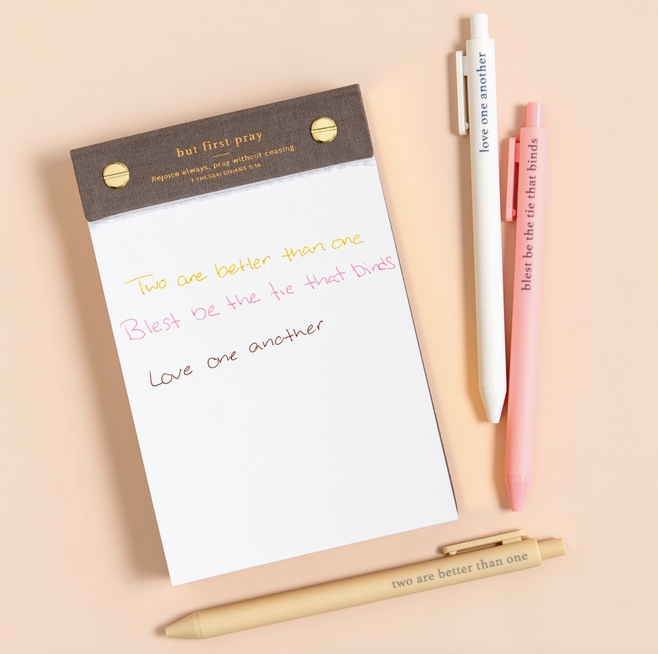 but first pray
Rejoice always, pray without ceasing.
1 THESSALONIANS 5:16
Two are better than one
Blest be the tie that binds
Love one another
love one another
blest be the tie that binds
two are better than one